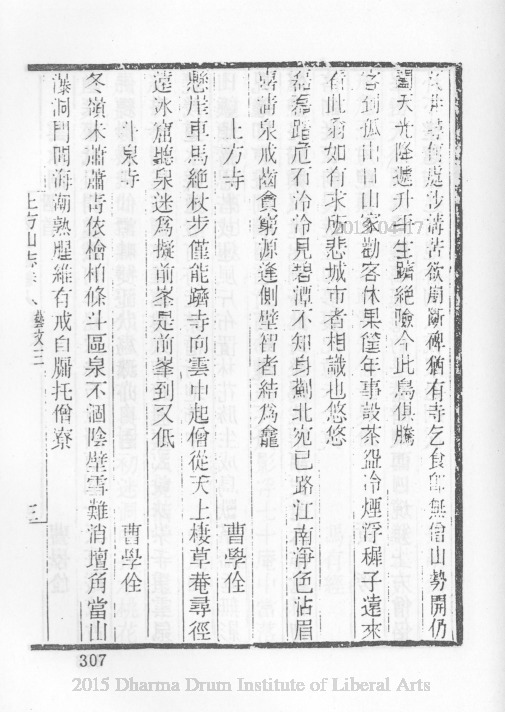 尋何處沙溝苦欲崩斷碑猶有寺乞食卽無僧山勢開仍
闔天光降遞升平生躋絶險今此鳥俱騰
客到孤出日山家勸客休果筐年事設茶盌冷煙浮穉子遠來
看此翁如有求所悲城市者相識也悠悠
磊磊踏危石泠泠見碧潭不知身對北宛已路江南淨色沾眉
嘉清泉戒齒貪窮源逢側壁智者結爲龕
上方寺 曹學佺
懸崖車馬絶杖步僅能躋寺向雲中起僧從天上棲草菴尋徑
遠冰窟聽泉迷爲擬前峯是前峯到又低
斗泉寺 曹學佺
冬嶺木蕭蕭靑依檜柏條斗區泉不涸陰壁雪難消壇角當山
瀑洞門聞海潮孰腥維有戒白牖托僧寮
上方山志卷八 藝文三 三
307
2015-04-17
2015 Dharma Drum Institute of Liberal Arts